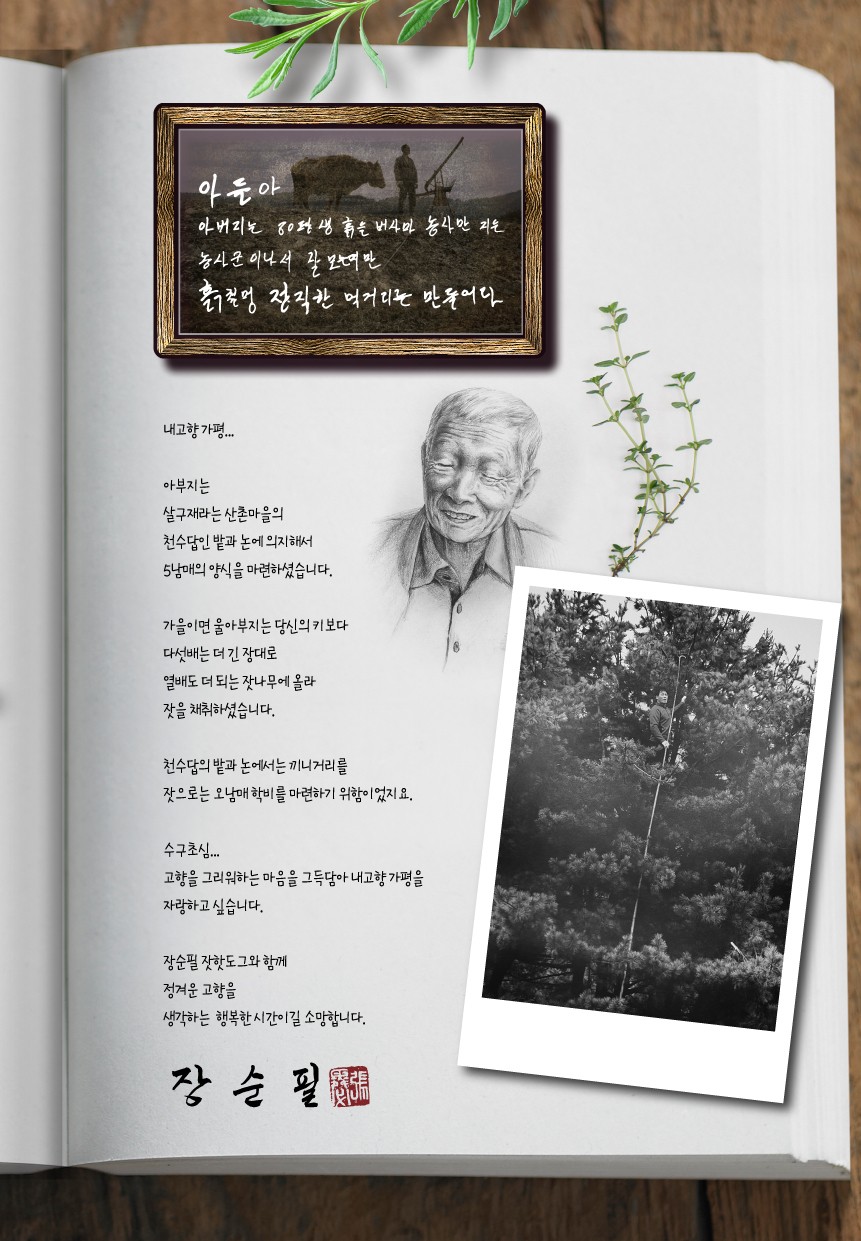 아들아
아버지는 80평생 흙을 벗삼아 농사만 지은
농사꾼이나서 잘 모르지만
흙처럼 정직한 먹거리를 만들어다
내고향 가평...
아부지는
살구재라는 산촌마을의
천수답인 밭과 논에 의지해서
5남매의 양식을 마련하셨습니다.
가을이면 울아부지는 당신의 키보다
다섯배는 더 긴 장대로
열배도 더 되는 잣나무에 올라
잣을 채취하셨습니다.
천수답의 밭과 논에서는 끼니거리를
잣으로는 오남매 학비를 마련하기 위함이었지요.
수구초심...
고향을 그리워하는 마음을 그득담아 내고향 가평을
자랑하고 싶습니다.
장순필 잣핫도그와 함께
정겨운 고향을
생각하는 행복한 시간이길 소망합니다.
장 순 필